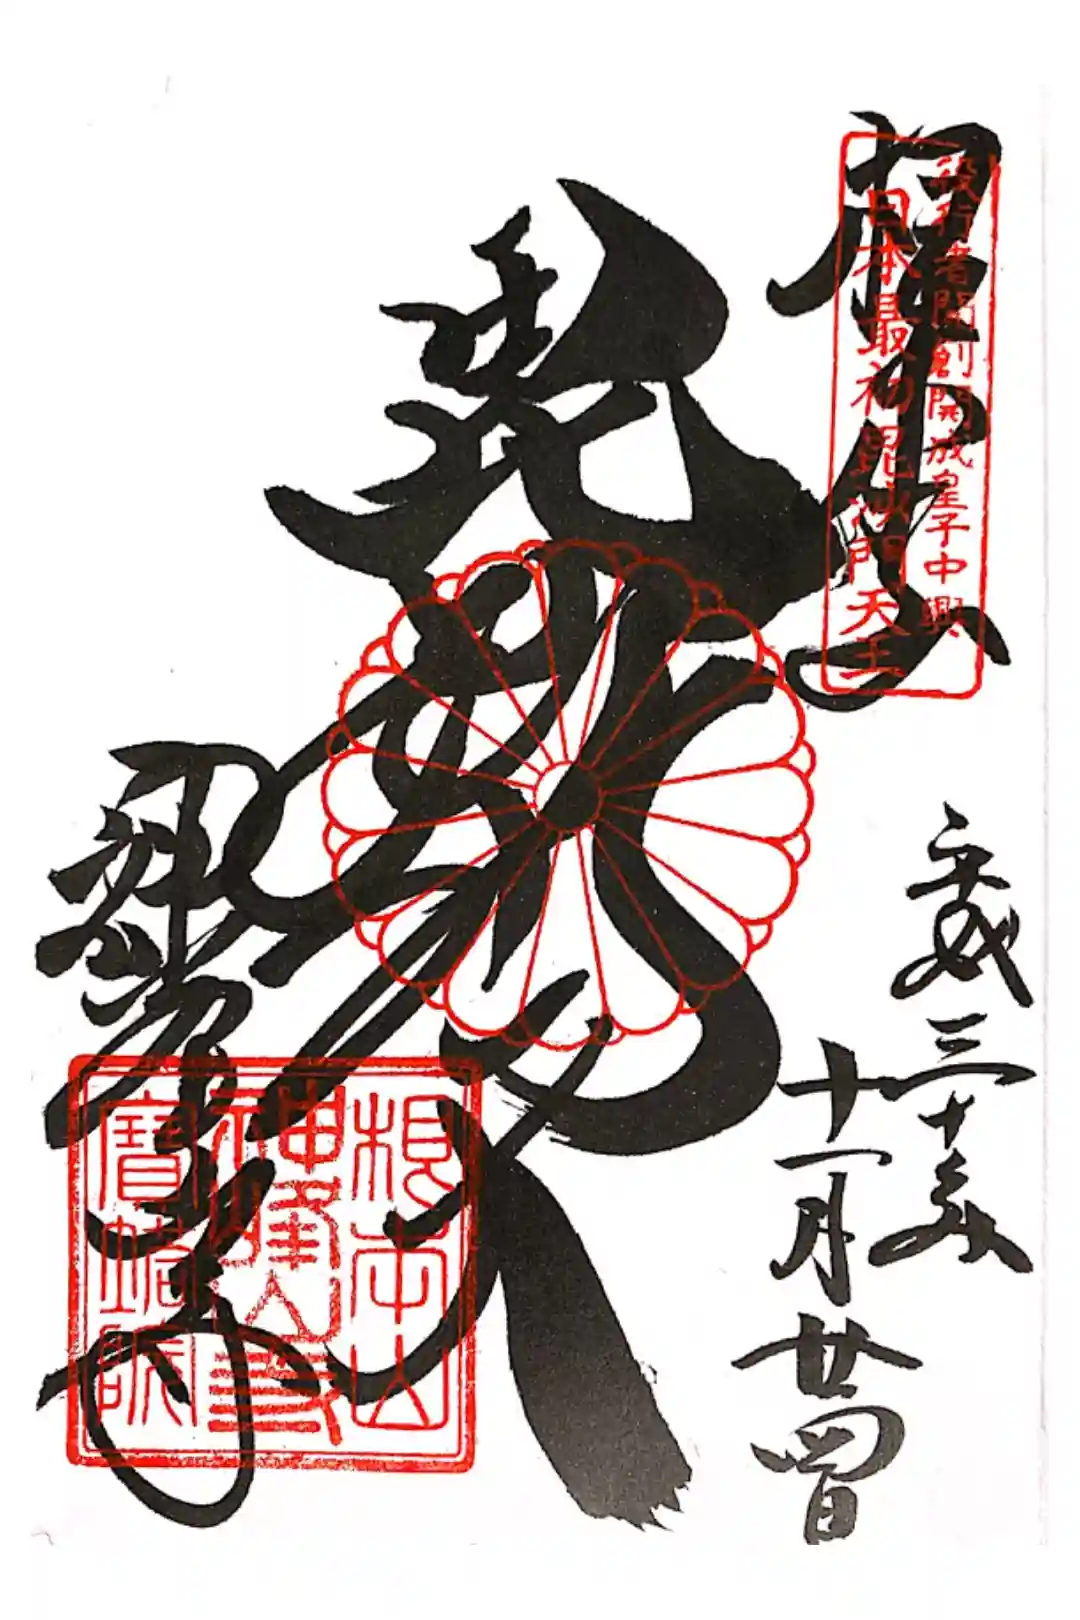 根本山
役行者開創開成皇子中興
日本最初毘沙門天王
平成三十年
十一月廿四日
神峯山寺
根本山
神峯山寺
寶塔院